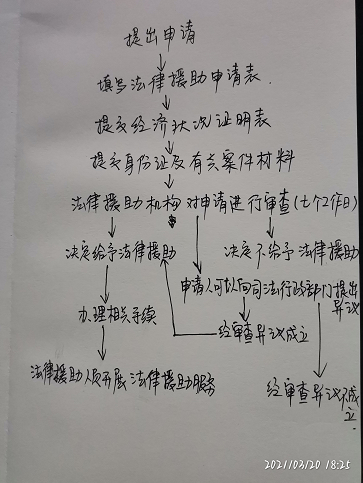 提出申请
填写法律援助申请表.
提交经济状况证明表
提交身份证及有关案件材料
法律援助机构对申请进行审查(七个工作日)
决定给予法律援助
决定不给予法律援助
申请人可以向司法行政部门提出
异议
办理相关手续
经审查异议成立
法律援助人员开展法律援助服务
经审查异议不成
立.
2021/03/20 18:25